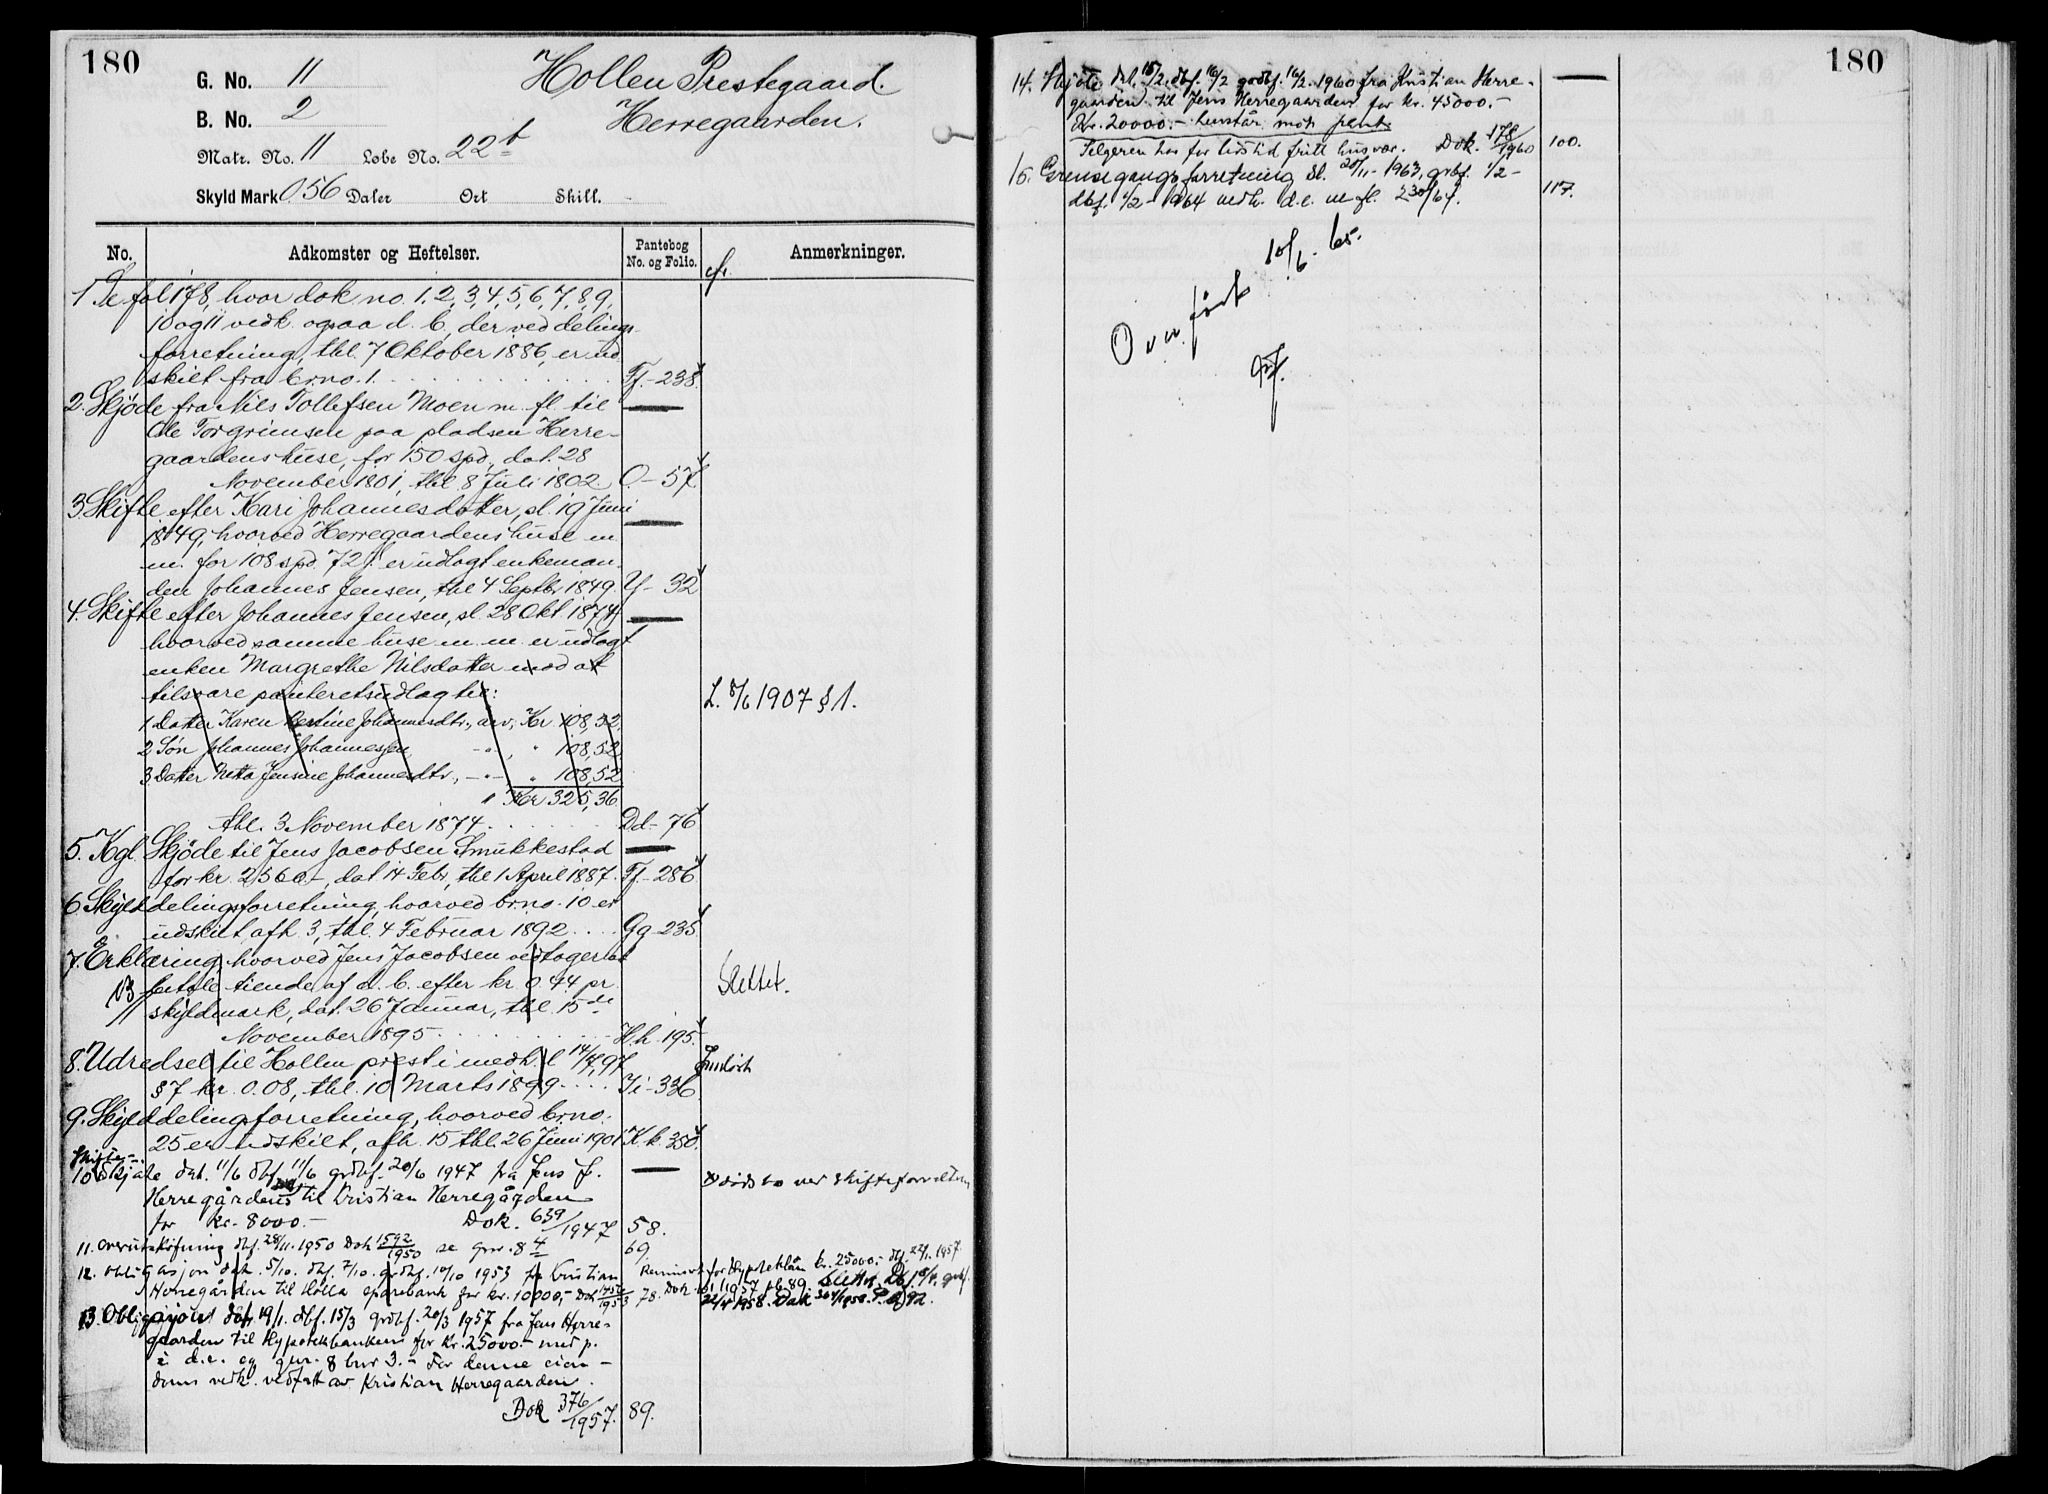 180
G. No. 11
Hollen Prestegaard.
B. No. 2
Herregaarden.
Matr. No. 11 Løbe No. 22b
Skyld Mark 0 56 Daler Ort Skill.
No. Adkomster og Heftelser. Pantebog No. og Folio. Anmerkninger.
cfr.
1 Se fol 178, hvor dok no. 1, 2, 3, 4, 5, 6, 7, 8, 9,
10 og 11 vedk. ogsaa d. b., der ved delings-
forretning, thl. 7 Oktober 1886, er ud
skilt fra br.no. 1. Ff.-238.
2. Skjöde fra Nils Tollefsen Moen m. fl. til
Ole Torgrimsen paa pladsen Herre-
gaardens huse, for 150 spd., dat. 28
November 1801, thl. 8 Juli 1802 O-57
3. Skifte efter Kari Johannesdatter, sl. 19 Juni
1849, hvorved Herregaardens huse m
m. for 108 spd. 72 ſ. er udlagt enkeman-
den Johannes Jensen, thl 4 Septbr 1849. Y-32
4. Skifte efter Johannes Jensen, sl. 28 Okt. 1874
hvorved samme huse m. m. er udlagt
enken Margrethe Nilsdatter mod at
tilsvare panteretsudlag til: L. 8/6 1907 § 1.
1 Datter Karen Bertine Johannesdtr., arv, Kr 108,52
2 Søn Johannes Johannessen, -"-, " 108,52
3 Datter Netta Jensine Johannesdtr, -"- " 108,52
Kr 325,36
thl. 3 November 1874. Dd-76
5. Kgl. Skjöde til Jens Jacobsen Smukkestad
for kr. 2560.-, dat 14 Febr, thl 1 April 1887. Ff-286
6 Skylddelingsforretning, hvorved br.no. 10 er
udskilt, afh. 3, thl. 4 Februar 1892 Gg-235
7. Erklæring, hvorved Jens Jacobsen vedtager at
betale tiende af d. b. efter kr 0.44 pr.
skyldmark, dat. 26 Januar, thl. 15de
November 1895 Hh.195.
Slettet.
8. Udredsel til Hollen prest i medh. l 14/7 97
§ 7 kr. 0.08, thl. 10 Marts 1899 Ii-336
Indløst
9. Skylddelingsforretning, hvorved br.no.
25 er udskilt, afh. 15 thl. 26 Juni 1901 Kk. 350.
Skifte-
10 Skjöte dat. 11/6 dbf. 11/6 grdbf. 20/6 1947 fra Jens J.
Herregårdens til Kristian Herregården
dødsbo ved skifteforvalteren
for kr. 8000.- Dok. 639/1947 58.
11. Overutskiftning dbf. 28/11.1950 Dok 1592/1950 se gnr. 8 4 69.
12. Obligasjon dat. 5/10. dbf. 7/10. grdbf. 10/10 1953 fra Kristian
Herregården til Holla sparebank for kr. 10000,- Dok 1456/1953 78.
for Hypoteklån kr. 25000.- dbf. 22/1. 1957.
13. Obligasjon dat. 19/1. dbf. 15/3 grdbf. 20/3 1957 fra Jens Herre-
gaarden til Hypotekbanken for kr. 25000.- med p.
i d.e. og gnr. 8 bnr 3. - For denne eien-
doms vedk. vedtatt av Kristian Herregaarden.
Dok 376/1957. 89.
180
14. Skjöte dat. 15/2. dbf. 16/2 grdbf. 16/2. 1960 fra Kristian Herre-
gaarden til Jens Herregaarden for kr. 45000.-
Kr. 20000.- henstår mot pant.
Selgeren har for livstid fritt husvær. Dok. 178/1960 100.
15. Grensegangsforretning sl. 20/11-1963, grbf. 1/2-
dbf. 1/2-1964 vedk. d.e. m.fl. 230/64. 117.
Overført 10/6. 65.